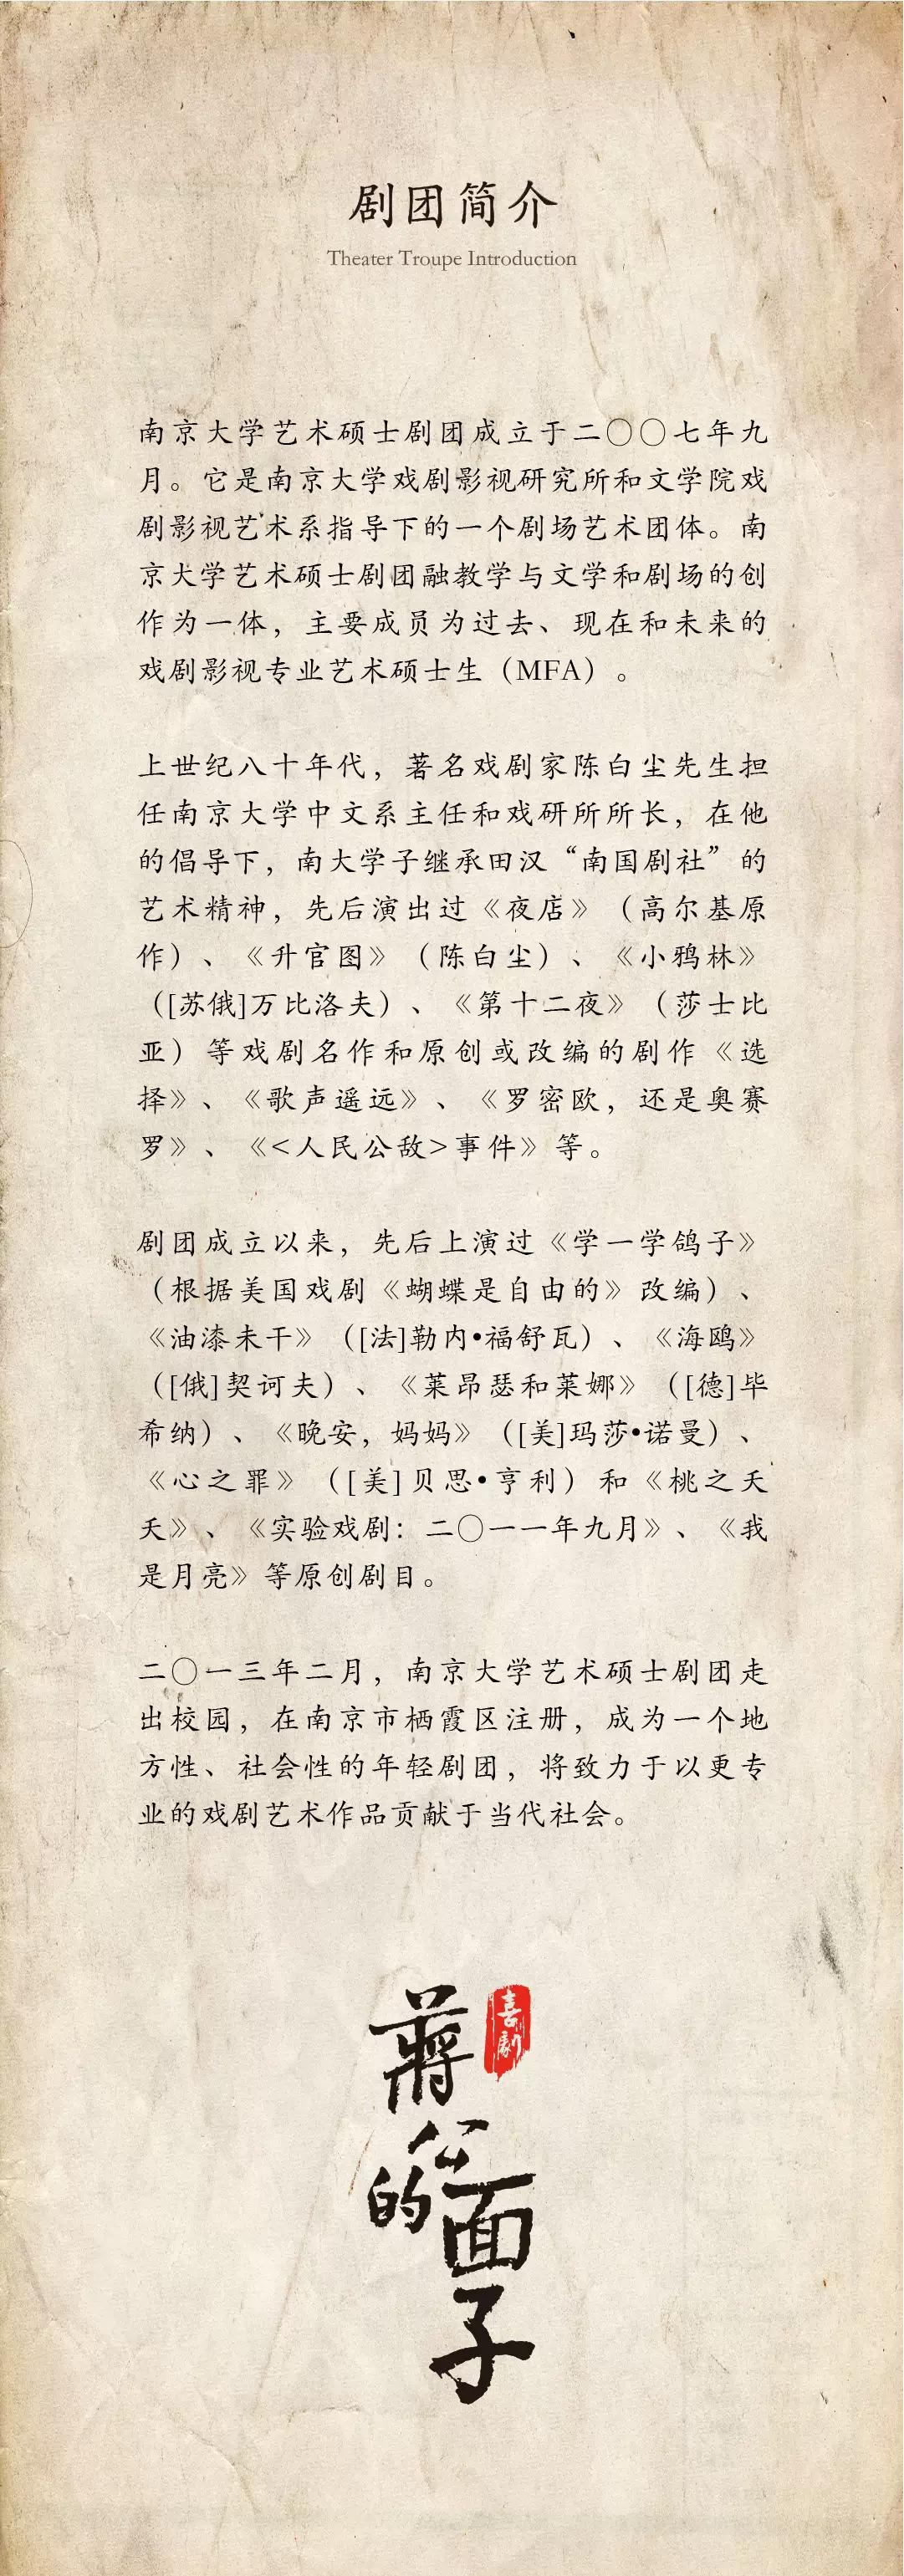 剧团简介
Theater Troupe Introduction
南京大学艺术硕士剧团成立于二〇〇七年九
月。它是南京大学戏剧影视研究所和文学院戏
剧影视艺术系指导下的一个剧场艺术团体。南
京大学艺术硕士剧团融教学与文学和剧场的创
作为一体，主要成员为过去、现在和未来的
戏剧影视专业艺术硕士生（MFA）。
上世纪八十年代，著名戏剧家陈白尘先生担
任南京大学中文系主任和戏研所所长，在他
的倡导下，南大学子继承田汉“南国剧社”的
艺术精神，先后演出过《夜店》（高尔基原
作）、《升官图》（陈白尘）、《小鸦林》
（[苏俄]万比洛夫）、《第十二夜》（莎士比
亚）等戏剧名作和原创或改编的剧作《选
择》、《歌声遥远》、《罗密欧，还是奥赛
罗》、《<人民公敌>事件》等。
剧团成立以来，先后上演过《学一学鸽子》
（根据美国戏剧《蝴蝶是自由的》改编）、
《油漆未干》（[法]勒内•福舒瓦）、《海鸥》
（[俄]契诃夫）、《莱昂瑟和莱娜》（[德]毕
希纳）、《晚安，妈妈》（[美]玛莎•诺曼）、
《心之罪》（[美]贝思•亨利）和《桃之夭
夭》、《实验戏剧：二〇一一年九月》、《我
是月亮》等原创剧目。
二〇一三年二月，南京大学艺术硕士剧团走
出校园，在南京市栖霞区注册，成为一个地
方性、社会性的年轻剧团，将致力于以更专
业的戏剧艺术作品贡献于当代社会。
蔣公的面子
喜劇